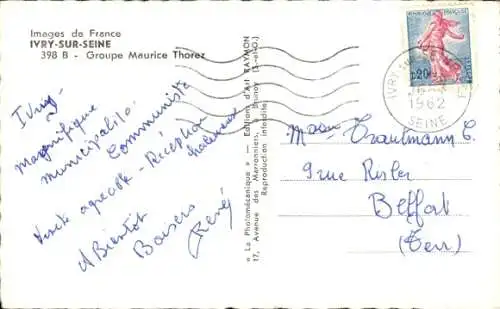 Images de France
IVRY-SUR-SEINE
398 B - Groupe Maurice Thorez
Ivry -
Magnifique
municipalité
Communiste
Visite agréable - Réception
chaleureuse
A Bientôt
Baisers
René
« La Photomécanique » — Editions d'Art RAYMON
17, Avenue des Marronniers, (S.-et-O.)
Reproduction interdite
0,20
IVRY SUR
1962
SEINE
Trautmann C.
9 rue Risler
Belfort
(Terr)